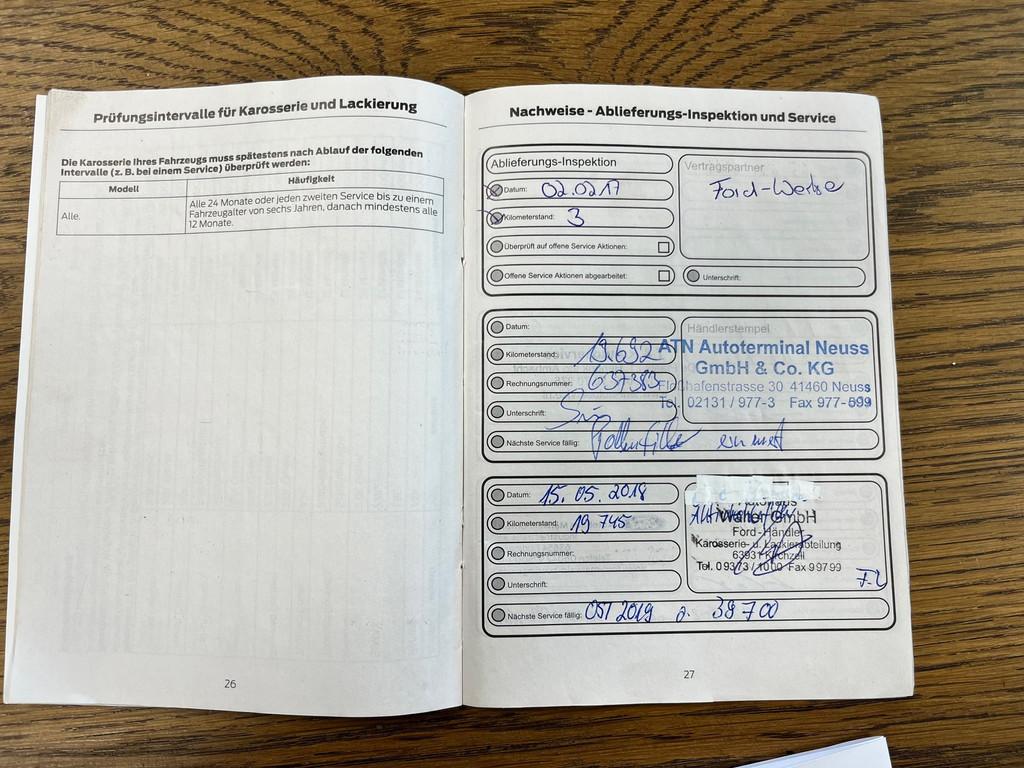 Prüfungsintervalle für Karosserie und Lackierung
Die Karosserie Ihres Fahrzeugs muss spätestens nach Ablauf der folgenden
Intervalle (z. B. bei einem Service) überprüft werden:
Modell
Häufigkeit
Alle.
Alle 24 Monate oder jeden zweiten Service bis zu einem
Fahrzeugalter von sechs Jahren, danach mindestens alle
12 Monate.
26
Nachweise - Ablieferungs-Inspektion und Service
Ablieferungs-Inspektion
Datum: 02.0217
Kilometerstand: 3
Überprüft auf offene Service Aktionen:
Offene Service Aktionen abgearbeitet:
Vertragspartner
Ford-Werke
Unterschrift:
Datum:
Kilometerstand: 19.692
Rechnungsnummer: 637383
Unterschrift:
Nächste Service fällig: Pollenfilter erneuert
Händlerstempel
ATN Autoterminal Neuss
GmbH & Co. KG
Floßhafenstrasse 30 41460 Neuss
Tel. 02131 / 977-3 Fax 977-599
Datum: 15. 05. 2018
Kilometerstand: 19 745
Rechnungsnummer:
Unterschrift:
Nächste Service fällig: 05/ 2019 o. 39 700
Autohaus
Walter GmbH
Ford-Händler
Karosserie- u. Lackierabteilung
63931 Kirchzell
Tel. 09373 / 1000 Fax 99799
27